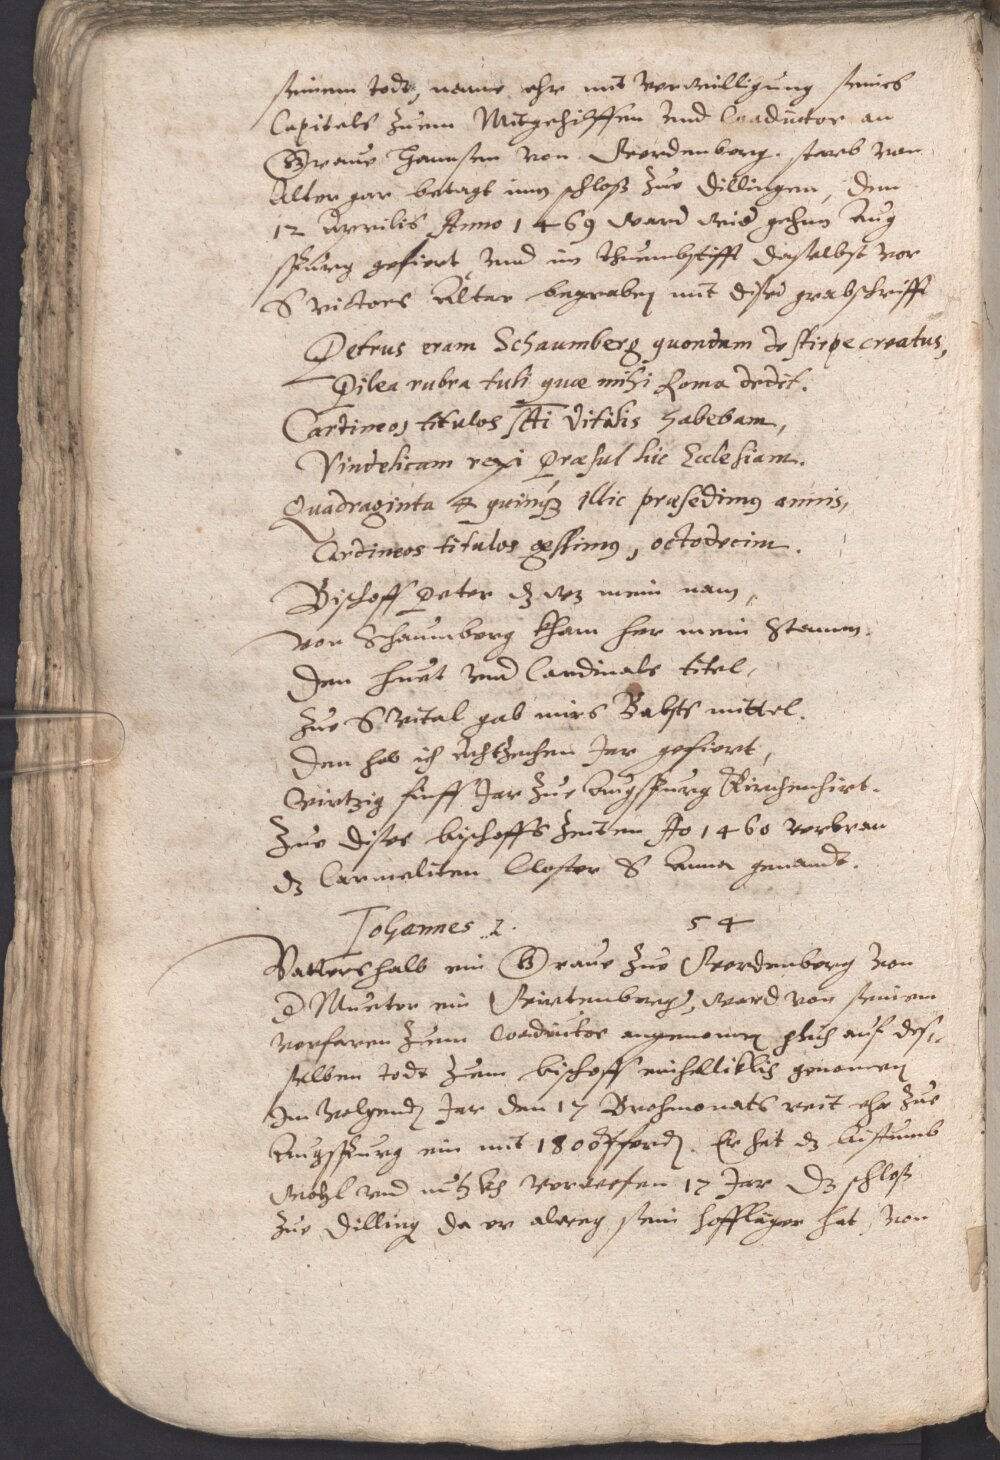 seinem todt, name ehr mit verwilligung seines
Capitels zuem Mitgehilffen und Coadiutor an
Grave Hannsen von Werdenberg. starb von
Alter gar betagt inn schloß zue Dillingen, den
12 Aprilis Anno 1469 ward gehn Aug
spurg gefiert, und im Thuembstifft daselbst vor
S victors Altar begraben mit diser grabschrifft
Petrus eram Schaumberg quondam de stirpe creatus,
Pilea rubra tuli quæ mihi Roma dedit.
Cardineos titulos Sti Vitalis habebam,
Vindelicam rexi Præsul hic Ecclesiam.
Quadraginta & quinqz illic præsedimus annis,
Cardineos titulos gessimus, octodecim.
Bischoff Peter dz wz mein nam,
von Schaumberg kham her mein Stamm.
Den huet und Cardinals titel,
zue S Vital gab mirs Babsts mittel.
Den hab ich Achtzehen Jar gefiert,
Viertzig finff Jar zue Augspurg Kirchenhirt.
Zue dises bischoffs Zeiten Ao 1460 verbran
dz Carmeliten Closter S Anna genandt.
Johannes 2. 54
Vattershalb ein Grave zue Werdenberg von
d Mueter ein Wirtenberg, ward von seinem
vorfaren zuem Coadiutor angenomen auf des=
selben todt zuem bischoff einhelliklich genomen
Im volgend Jar den 17 Brahmonats reit ehr zue
Augspurg ein mit 1800 pferd. Er hat dz Bistumb
wohl und nutzlich verwesen 17 Jar Dz schloß
zue Dilling da er alweg sein hoffläger hat, von